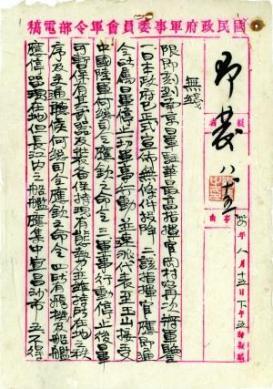 國民政府軍事委員會軍令部電稿
即發 八十五
年八月十五日下午
無線
限即刻到南京日軍駐華最高指揮官岡村寧次將軍鑒
一日本政府已正式宣佈無條件投降二該指揮官應即通
令所屬日軍停止一切軍事行動並速派代表至玉山接受
中國陸軍何總司令應欽之命令三軍事行動停止後日軍
可暫保有其武器及裝備保持現有態勢並維持所在地之秩
序及交通聽候何總司令應欽之命令四所有飛機及船艦
應停留現在地但長江內之船艦應集中宜昌沙市五不得